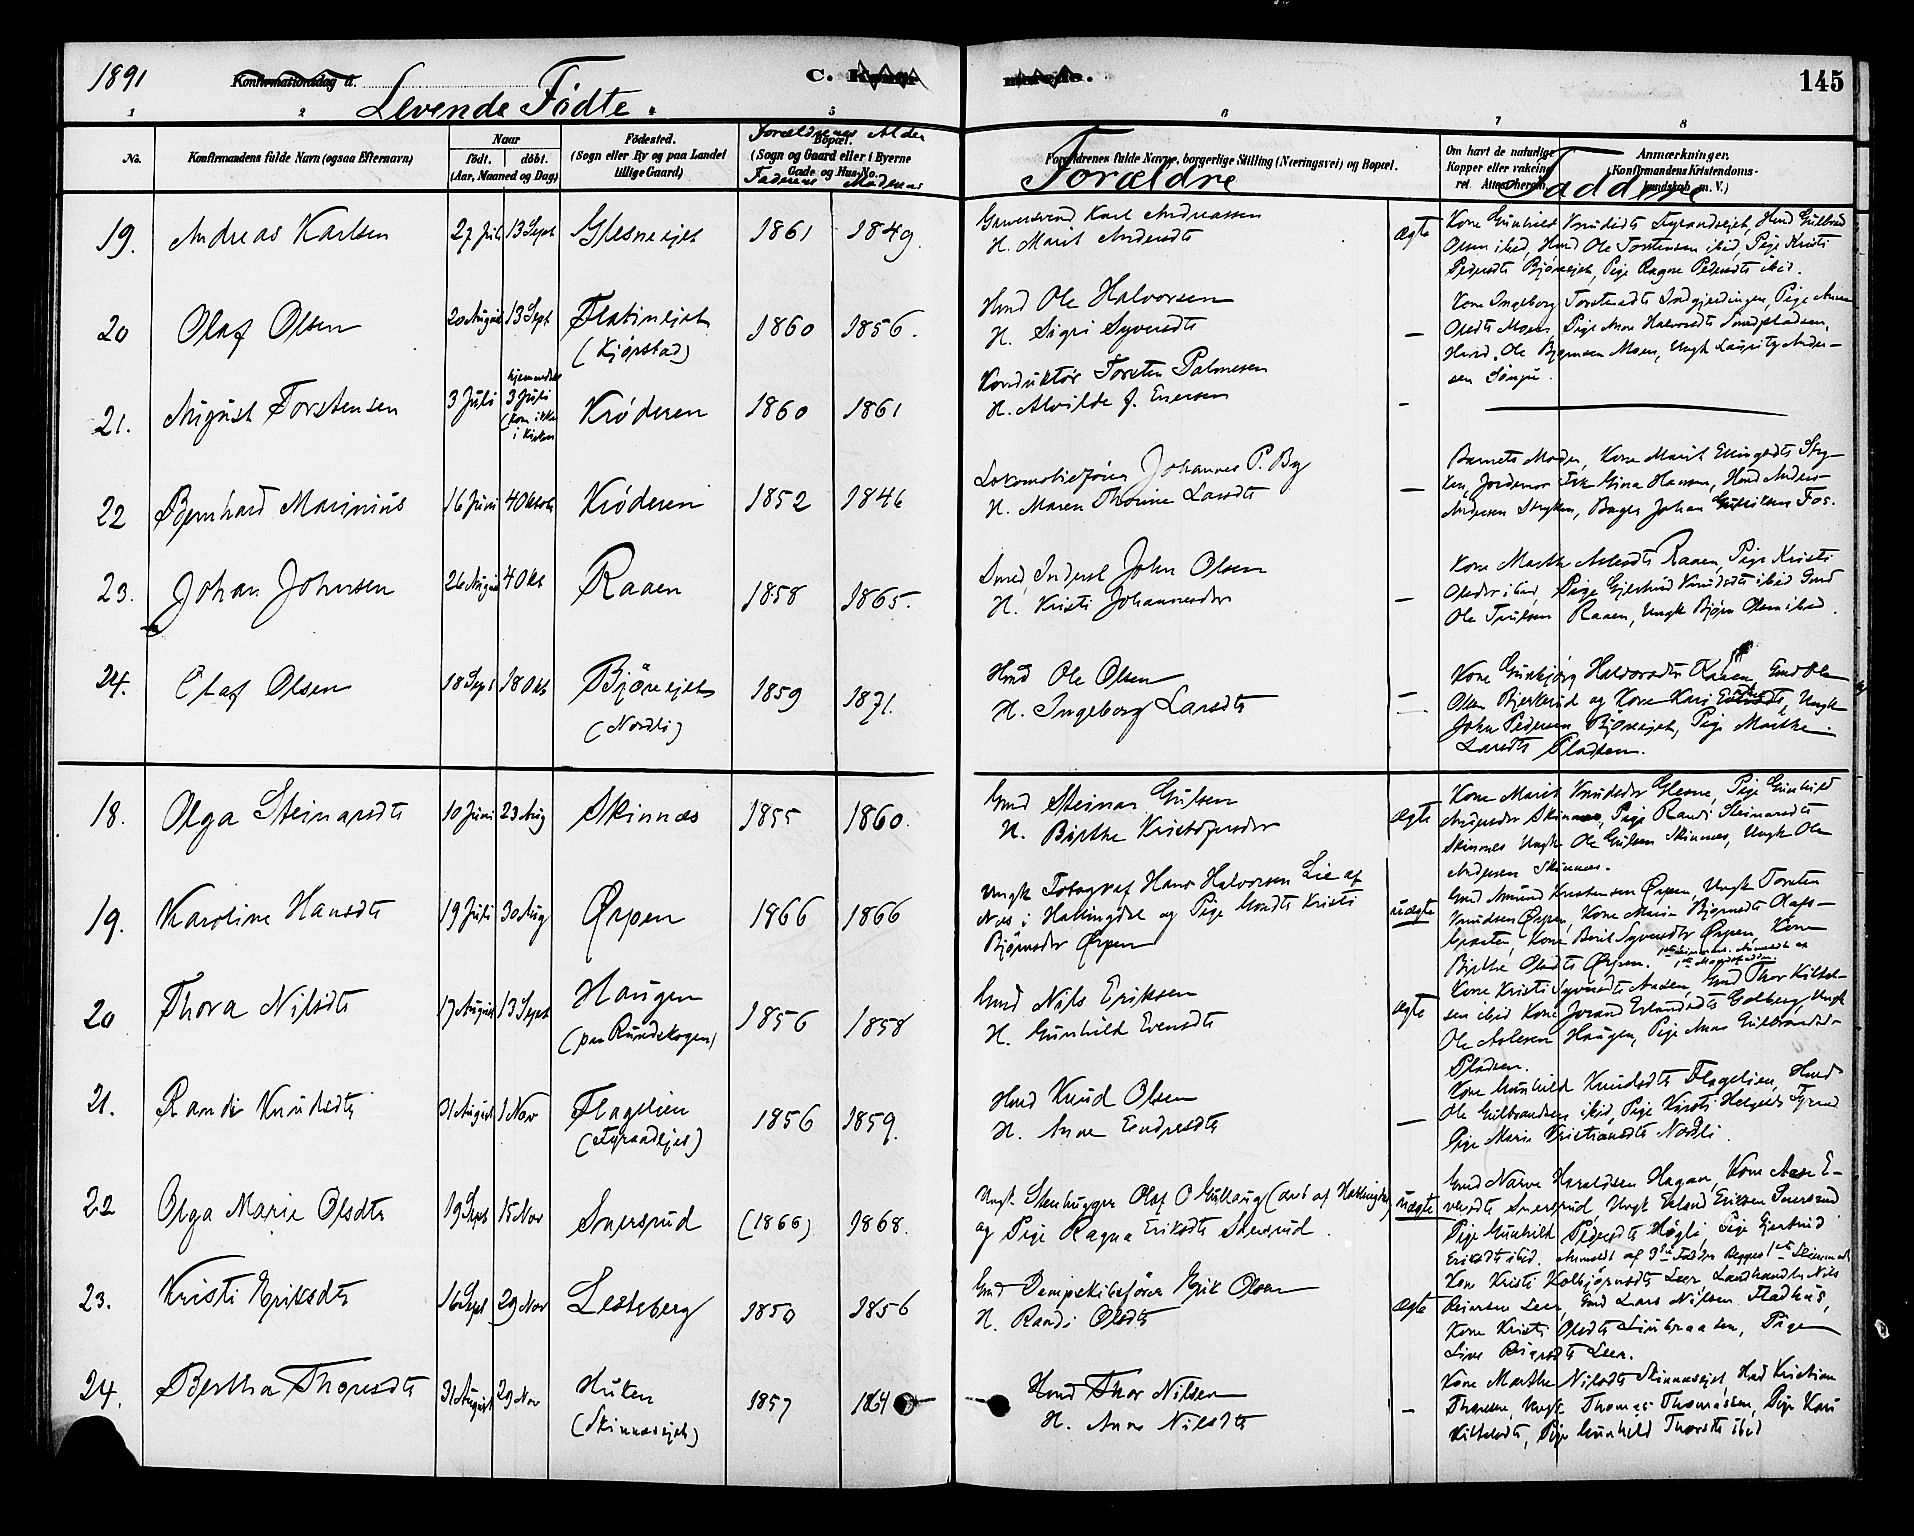 1891
Konfirmationsdag d.
C.
145
Levende Födte.
1 2 4 5 6 7 8
No.
Konfirmandens fulde Navn (ogsaa Efternavn)
Naar
födt. döbt.
(Aar, Maaned og Dag)
Födested.
(Sogn eller By og paa Landet
tillige Gaard)
Forældrenes Alder
Bopæl.
(Sogn og Gaard eller i Byerne
Gade og Hus-No.
Faderens Moderens
Forældrenes fulde Navne, borgerlige Stilling (Næringsvei) og Bopæl.
Forældre
Om havt de naturlige
Kopper eller vaksine-
ret. Attest herom.
Anmærkninger.
(Konfirmandens Kristendoms-
kundskab m. V.)
Faddere
19. Andreas Karlsen 27 Juli 13 Sept Glesneejet 1861 1849.
Karl Andreassen
H. Marit Andersdt
ægte
Kone Gunhild Knudsdt
Olsen ibid, Hmd Ole Torstensen ibid, Pige Kristi
Pedersdt Bjøreejet, Pige Ragne Pedersdt ibid.
20 Olaf Olsen 20 August 13 Sept Flatineiet
(Kjørstad)
1860 1856.
Hmd Ole Halvorsen
H. Sigri Syversdt
—
Kone Ingeborg Torstensdt
Olsdt Moen, Pige Anne Halvorsdt
Hmd. Ole Bjørnsen Moen, Ungk Lauritz Ander-
sen
21. August Torstensen 3 Juli hjemmedøbt
3 Juli
(kom ikke
i Kirken
Krøderen 1860 1861
Konduktør Torsten Palmesen
H. Alvilde J. Enersen
—
22 Bernhard Marinius 16 Juni 4 Oktob Krøderen 1852 1846
Lokomotivfører Johannes P. By
H. Maren Thorine Larsdt
—
Barnets Moder, Kone Marit Ellingsdt Stry-
ken, Jordemor Frk Gina Hansen, Hmd Anders
Andersen Stryken, Bager Johan
23. Johan Johnsen 26 August 4 Okt Raaen 1858 1865.
Smed, Inderst John Olsen
H. Kristi Johannesdr
—
Kone Marthe Raaen, Pige Kristi
Olsdr ibid, Pige Gjertrud Knudsdt ibid Gmd
Ole Trulsen Raaen, Ungk Bjørn Olsen ibid.
24. Olaf Olsen 18 Sept 18 Okt Björeejet
(Nordli)
1859 1871.
Hmd Ole Olsen
H. Ingeborg Larsdt
—
Kone Gunbjørg Halvorsdt Raaen, Gmd Ole
Olsen Bjerkerud og Kone Kari Ungk
John Pedersen Björeejet, Pige Marthe
Larsdt Pladsen.
18. Olga Steinarsdt 10 Juni 23 Aug Skinnes 1855 1860.
Gmd Steinar Gulsen
H. Birthe Kristofersdr
ægte
Kone Marit Knudsdr Glesne, Pige Gunhild
Andersdr Skinnes, Pige Randi Steinarsdt
Skinnes Ungk Ole Gulsen Skinnes, Ungk Ole
Andersen Skinnes.
19. Karoline Hansdt 19 Juli 30 Aug Ørpen 1866 1866
Ungk Fotograf Hans Halvorsen Lie af
Nes i Hallingdal og Pige Kristi
Bjørnsdr Ørpen
uægte
Gmd Amund Kristensen Ørpen, Ungk Torsten
Knudsen Ørpen, Kone Maria Bjørnsdt
Kone Berit Syversdtr Ørpen, Kone
Birthe Olsdt Ørpen.
20 Thora Nilsdt 17 August 13 Sept Haugen
(paa Rundskogen)
1856 1858
Gmd Nils Eriksen
H. Gunhild Evensdt
ægte
Kone Kristi Syversdt Aasen, Gmd Thor Kittel-
sen ibid Kone Jorand Erlandsdt Golberg, Ungk
Ole Haugen, Pige Anne Gulbrandsd-
Pladsen.
21. Randi Knudsdt 31 August 1 Nov Flagelien
1856 1859.
Hmd Knud Olsen
H. Anne Endresdt
—
Kone Gunhild Knudsdt Flagelien, Hmd
Ole Gulbrandsen ibid, Pige Kristi
Pige Marie Kristiansdt Nordli.
22 Olga Marie Olsdt 19 Sept 15 Nov Snersrud (1866) 1868.
Ungk. Stenhugger Olaf O Gullaug
og Pige Ragna Eriksdt Snersrud.
uægte
Gmd Narve Haraldsen Hagen, Kone Aase E-
versdt Snersrud Ungk Erland Eriksen Snersrud
Pige Gunhild Pedersdt Høgli, Pige Gjertrud
Eriksdt ibid.
23. Kristi Eriksdt 16 Sept 29 Nov Lesteberg 1850 1856
Gmd Dampskibsfører Erik Olsen
H. Randi Olsdt
ægte
Kone Kristi Kolbjørnsdt Leer, Landhandler Nils
Reiersen Leer, Gmd Lars Nilsen
Kone Kristi Olsdt Pige
Live Reiersdt Leer.
24. Bertha Thorsdt 31 August 29 Nov Huken
(Skinnesejet)
1857 1864
Hmd Thor Nilsen
H. Anne Nilsdt
—
Kone Marthe Nilsdt Skinnesejet, Hmd Kristian
Thoresen, Ungk Thomas Thomassen, Pige Kari
Kittelsdt, Pige Gunhild Thorsdt ibid